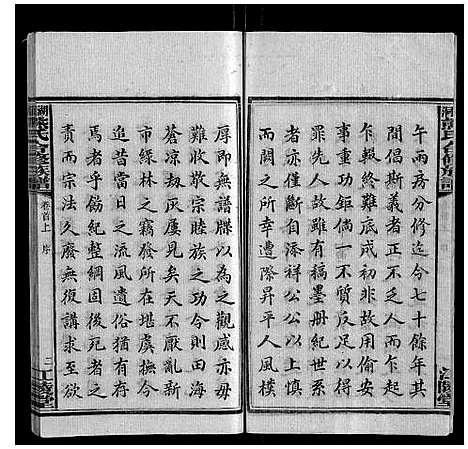 午兩房分修迄今七十餘年其
間倡斯義者正不乏人而乍起
乍輟終難底成初非故用偷安
事重功鉅倘一不質反足以得
罪先人故雖有稿墨册紀世系
之亦僅斷自添祥公公以上慎
而闕之所幸遭際昇平人風樸
厚即無譜牒以為之觀感亦毋
難收敬宗睦族之功今則田海
蒼涼劫灰屢見矣天不厭亂新
市綠林之竊發所在堪虞撫今
追昔當日之流風遺俗猶有存
焉者乎飭紀整綱固後死者之
責而坐視其久廢無復講求至欲
氏合修族譜
卷首上 序
二